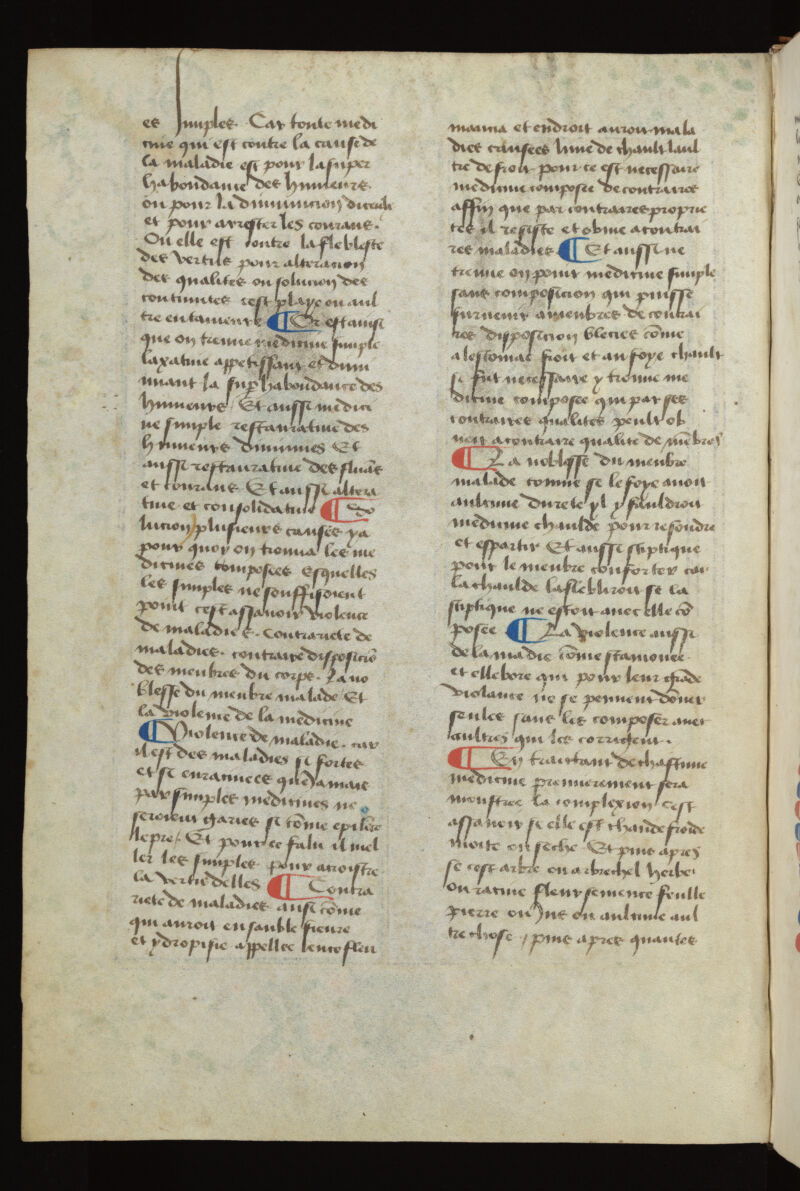 es simples. Car toute medi
cine qui est contre la cause de
la maladie est pour la super
habondance des humeurs.
ou pour la diminucion diceulx
et pour arrester les courans.
Ou elle est contre la flebleste
des vertus pour alteracion
des qualites ou solucion des
continuites cest playe ou aul
tre entameure ¶ Or est ainsi
que on treuue medicine simple
laxatiue appetissant et dimi
nuant la sup habondance des
humeurs / Et aussi medici
ne simple restauratiue des
humeurs diminues Et
aussi restauratiue des fluās
et courans Et aussi altera
tiue et consolidatiue ¶ So
lucion / plusieurs causes ya
pour quoy on trouua les me
dicines composees Esquelles
les simples ne souffisoient
point cest assauoir violence
de maladies. Contrariete de
maladies. contraire disposiciō
des menbres du corps. La no
blesse du menbre malade Et
la violence de la medicine
¶ Violence de maladie. car
il est des maladies si fortes
et si enracinees que iamais
par simples medicines ne
seroient garies si cōme epilēce
lepre. Et pour ce falu il mel
ler les simples pour acroistre
la vertu delles ¶ Contra
riete de maladies ausi cōme
qui auroit ensanble fieure
et ydropisie appellee leucofleu
mancia et endroit auroit mala
dies causees lune de chault laul
tre de froit pour ce est necessaire
medicine composee de contraires
affin que par contraires proprie
tes il resiste et obuie a contrai
res maladies ¶ Et aussi ne
treuue on point medicine simple
sans composicion qui puisse
suruenir a menbres de contrai
res disposicion blecies cōme
a lestomac froit et au foye chault
si fut necessaire y trouue me
dicine composee qui par ses
contraires qualites peult ob
uier a contraire qualite de mēbres
¶ La noblesse du menbre
malade comme se le foye auoit
aulcune durete yl y fauldroit
medicine chaulde pour resoudre
et espartir Et aussi stiptique
pour le menbre conforter car
la chaulde laflebliroit se la
stiptique ne estoit auec elle cō
posee ¶ La violence aussi
de la madie cōme scamonee
et ellebore qui pour leur grāde
violance ne se peuuent dōner
seules sans les composer auec
aultres qui les corrigent.
¶ En traictant de chascune
medicine premierement sera
monstree la complexion cest
assauoir se elle est chaude froide
moite ou seche. Et puis apres
se cest arbre ou arbrechel herbe
ou racine fleur semence feulle
pierre ou jus ou aulcune aul
tre chose / puis apres quantes